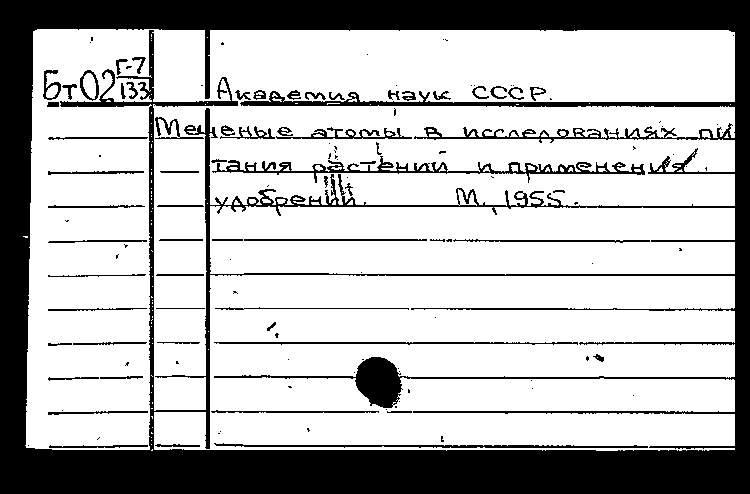 БтО2 Г-7
133
Академия наук СССР.
Меченые атомы в исследованиях пи
тания растений и применения
удобрений. М., 1955.